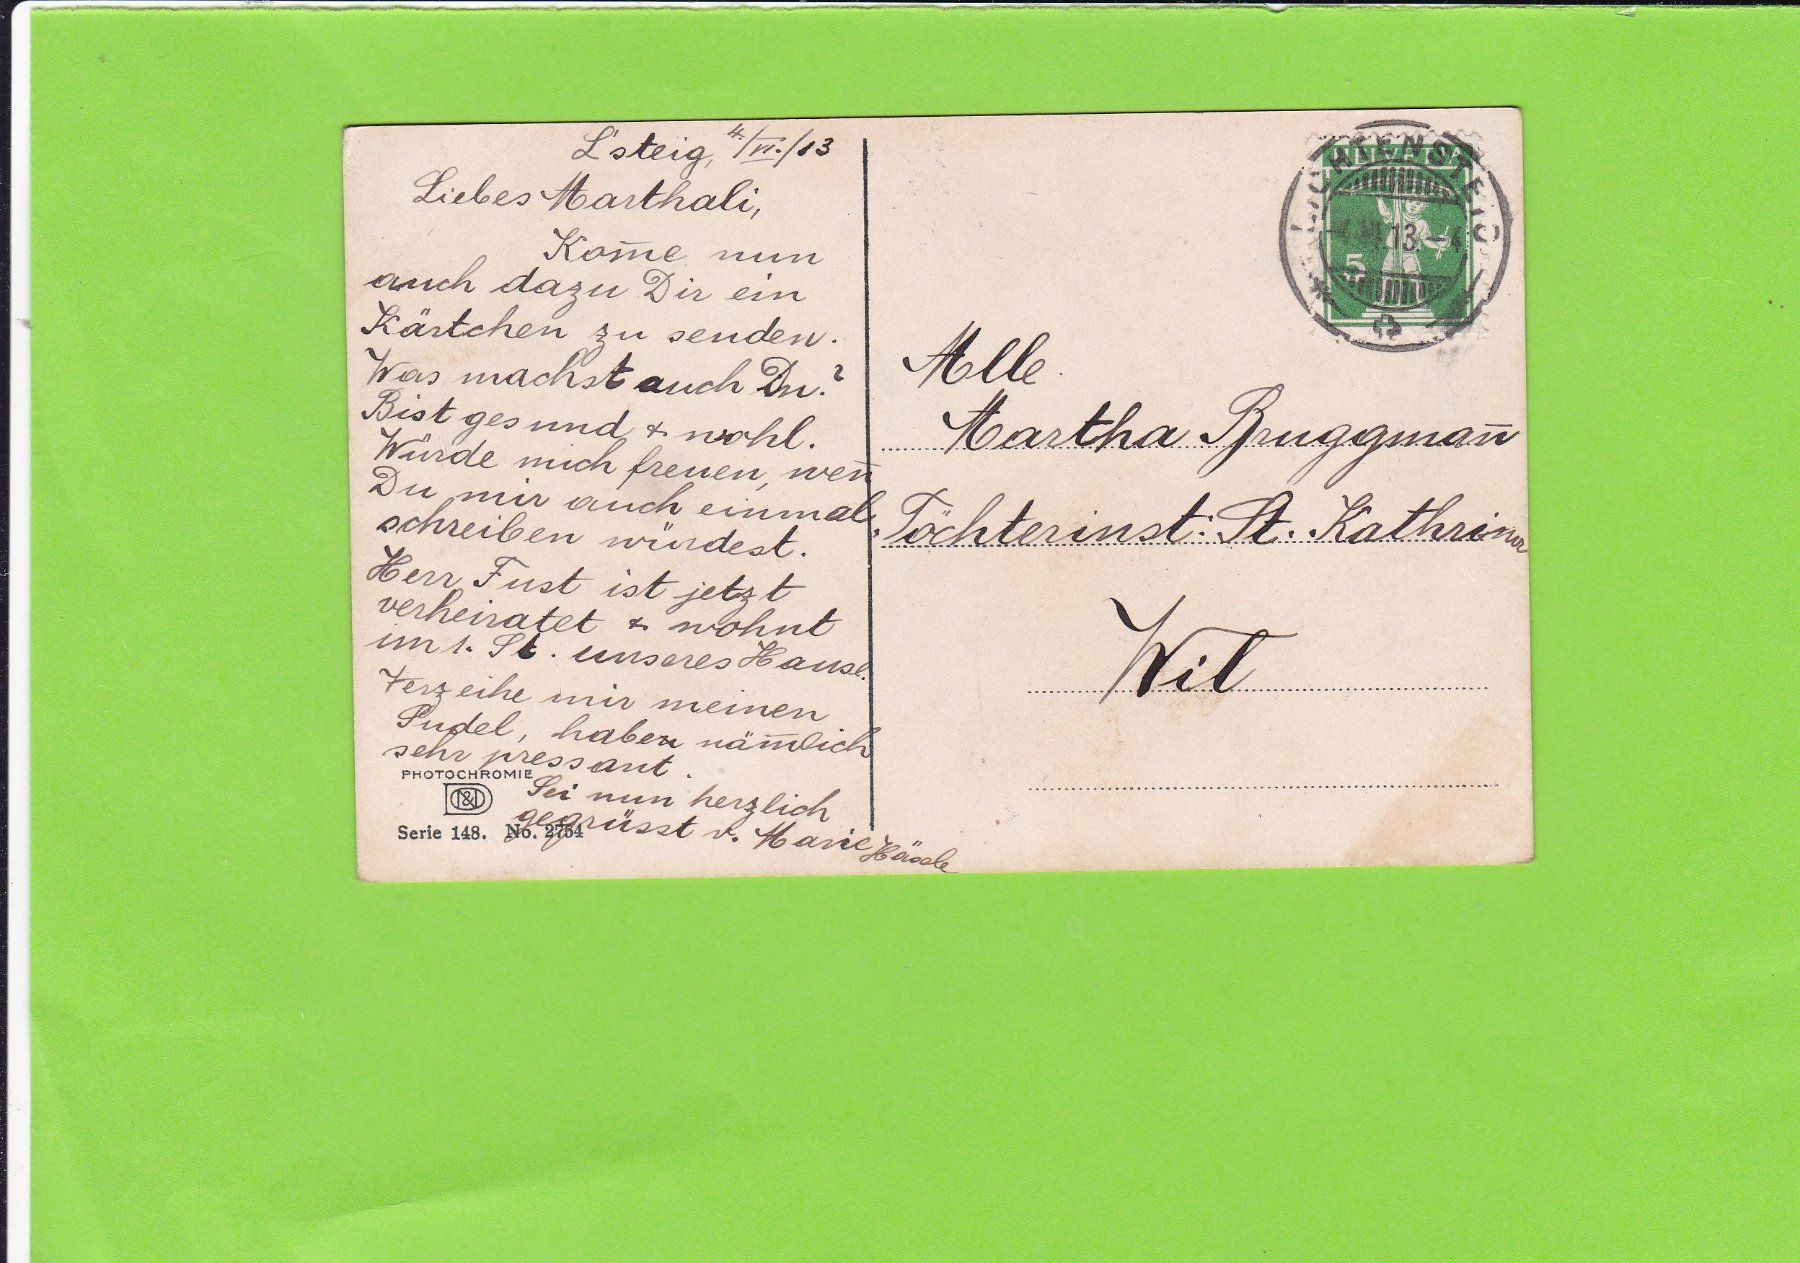 L'steig, 4./VI./13
Liebes Marthali,
Kom̄e nun
auch dazu Dir ein
Kärtchen zu senden.
Was machst auch Du?
Bist gesund & wohl.
Würde mich freuen, wen̄
Du mir auch einmal
schreiben würdest.
Herr Fust ist jetzt
verheiratet & wohnt
im 1. St. unseres Hause.
Verzeihe mir meinen
Pudel, haben näm̄lich
sehr pressant.
Sei nun herzlich
gegrüsst v. Marie
PHOTOCHROMIE
D&N
Serie 148. No. 2754
LICHTENSTEIG
13.
HELVETIA
5
Mlle
Martha Bruggman̄
Töchterinst: St. Kathrina
Wil